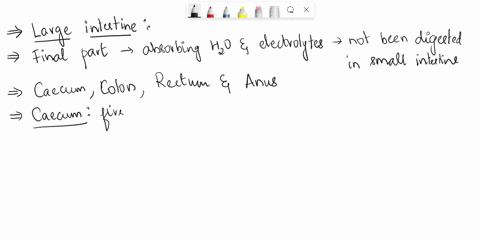 ⇒ Large intestine :
⇒ Final part → absorbing H₂O & electrolytes → not been digested
in small intestine
⇒ Caecum, Colon, Rectum & Anus
⇒ Caecum :